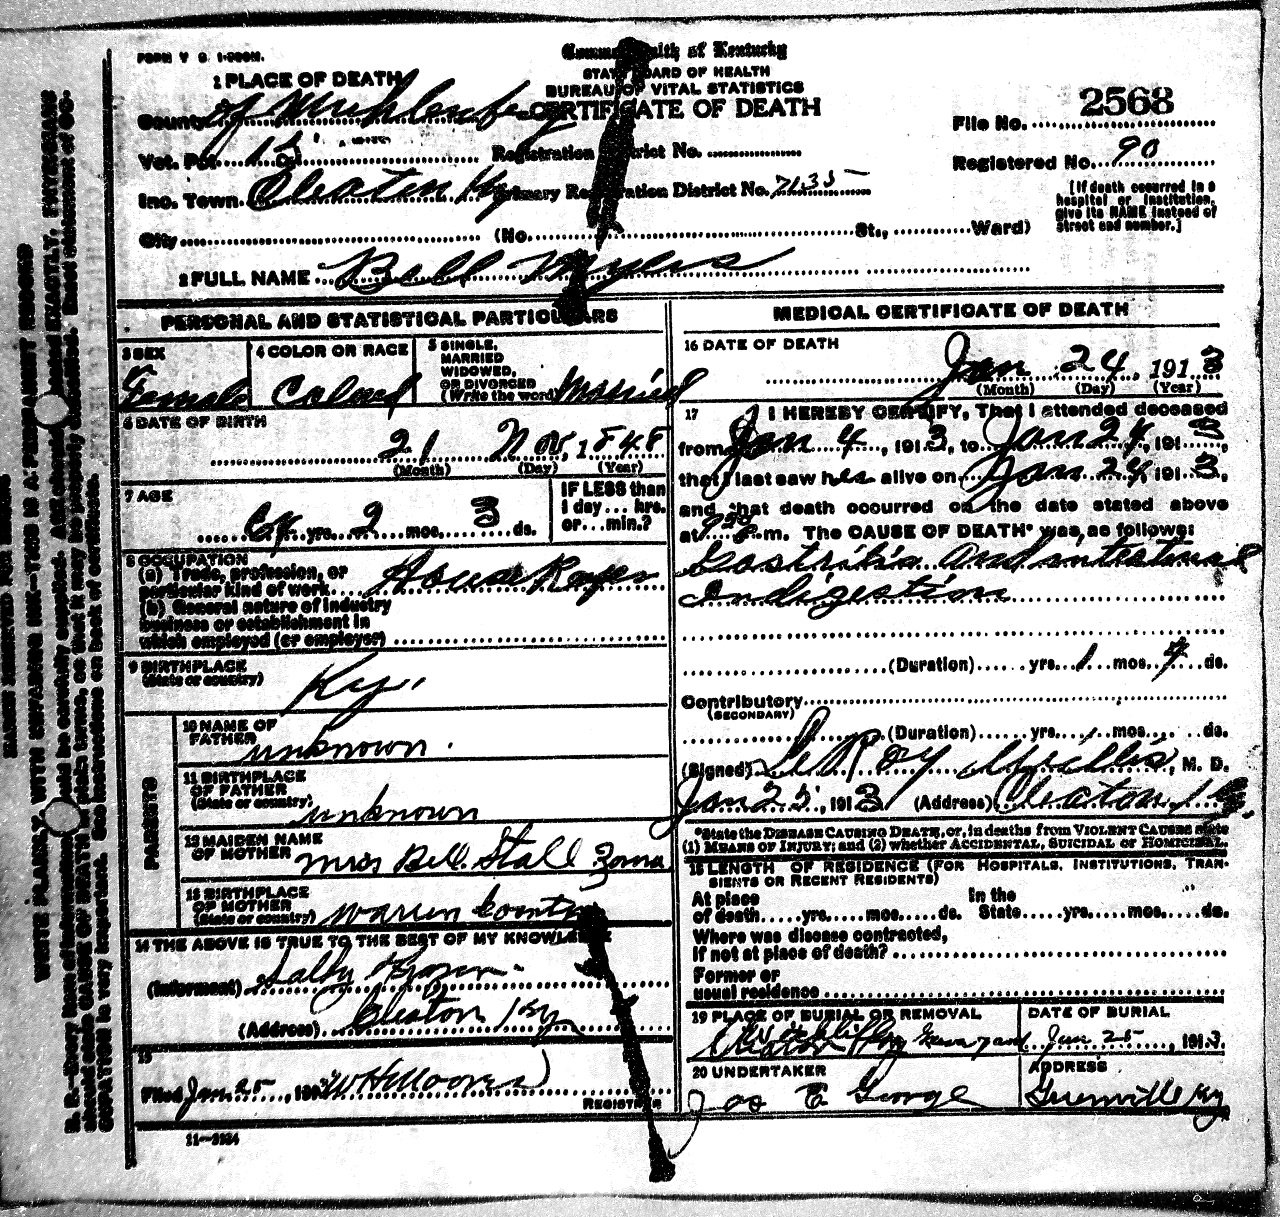 FORM V S 1-200M.
Commonwealth of Kentucky
STATE BOARD OF HEALTH
BUREAU OF VITAL STATISTICS
CERTIFICATE OF DEATH
1 PLACE OF DEATH
County of Muhlenberg
File No. 2568
Vot. Pct. 15
Registration District No.
Registered No. 90
Inc. Town. Cleaton Ky
Primary Registration District No. 7135
[If death occurred in a
hospital or institution,
give its NAME instead of
street and number.]
City (No. St., Ward)
2 FULL NAME Bell Myers
PERSONAL AND STATISTICAL PARTICULARS
3 SEX
Female
4 COLOR OR RACE
Colored
5 SINGLE,
MARRIED
WIDOWED,
OR DIVORCED
(Write the word) Married
6 DATE OF BIRTH
21 Nov, 1848
(Month) (Day) (Year)
7 AGE
64 yrs. 2 mos. 3 ds.
IF LESS than
1 day... hrs.
or...min.?
8 OCCUPATION
(a) Trade, profession, or
particular kind of work. House Keeper
(b) General nature of industry
business or establishment in
which employed (or employer)
9 BIRTHPLACE
(State or country)
Ky.
PARENTS
10 NAME OF
FATHER
unknown.
11 BIRTHPLACE
OF FATHER
(State or country)
unknown
12 MAIDEN NAME
OF MOTHER
Miss Bell Stall
13 BIRTHPLACE
OF MOTHER
(State or country)
Warren County
14 THE ABOVE IS TRUE TO THE BEST OF MY KNOWLEDGE
(Informant) Sally
(Address) Cleaton Ky
15
Filed Jan 25, 191 W H Moores
REGISTRAR
11-3184
MEDICAL CERTIFICATE OF DEATH
16 DATE OF DEATH
Jan 24, 1913
(Month) (Day) (Year)
17 I HEREBY CERTIFY, That I attended deceased
from Jan 4, 1913, to Jan 24, 1913,
that I last saw her alive on Jan 24, 1913,
and that death occurred on the date stated above
at 9 30 P m. The CAUSE OF DEATH* was, as follows:
Gastritis and intestinal
Indigestion
(Duration) yrs. 1 mos. 4 ds.
Contributory
(SECONDARY)
(Duration) yrs. mos. ds.
(Signed) LeRoy Willis, M. D.
Jan 25, 1913 (Address) Cleaton Ky.
*State the DISEASE CAUSING DEATH, or, in deaths from VIOLENT CAUSES state
(1) MEANS OF INJURY; and (2) whether ACCIDENTAL, SUICIDAL or HOMICIDAL.
18 LENGTH OF RESIDENCE (FOR HOSPITALS, INSTITUTIONS, TRANSIENTS OR RECENT RESIDENTS)
At place In the
of death yrs. mos. ds. State yrs. mos. ds.
Where was disease contracted,
If not at place of death?
Former or
usual residence
19 PLACE OF BURIAL OR REMOVAL
DATE OF BURIAL
Jan 25, 1913.
20 UNDERTAKER
Jas E George
ADDRESS
Greenville Ky
MARGIN RESERVED FOR BINDING
WRITE PLAINLY, WITH UNFADING INK—THIS IS A PERMANENT RECORD
N. B.—Every item of information should be carefully supplied. AGE should be stated EXACTLY. PHYSICIANS
should state CAUSE OF DEATH in plain terms, so that it may be properly classified. Exact statement of OC-
CUPATION is very important. See instructions on back of certificate.